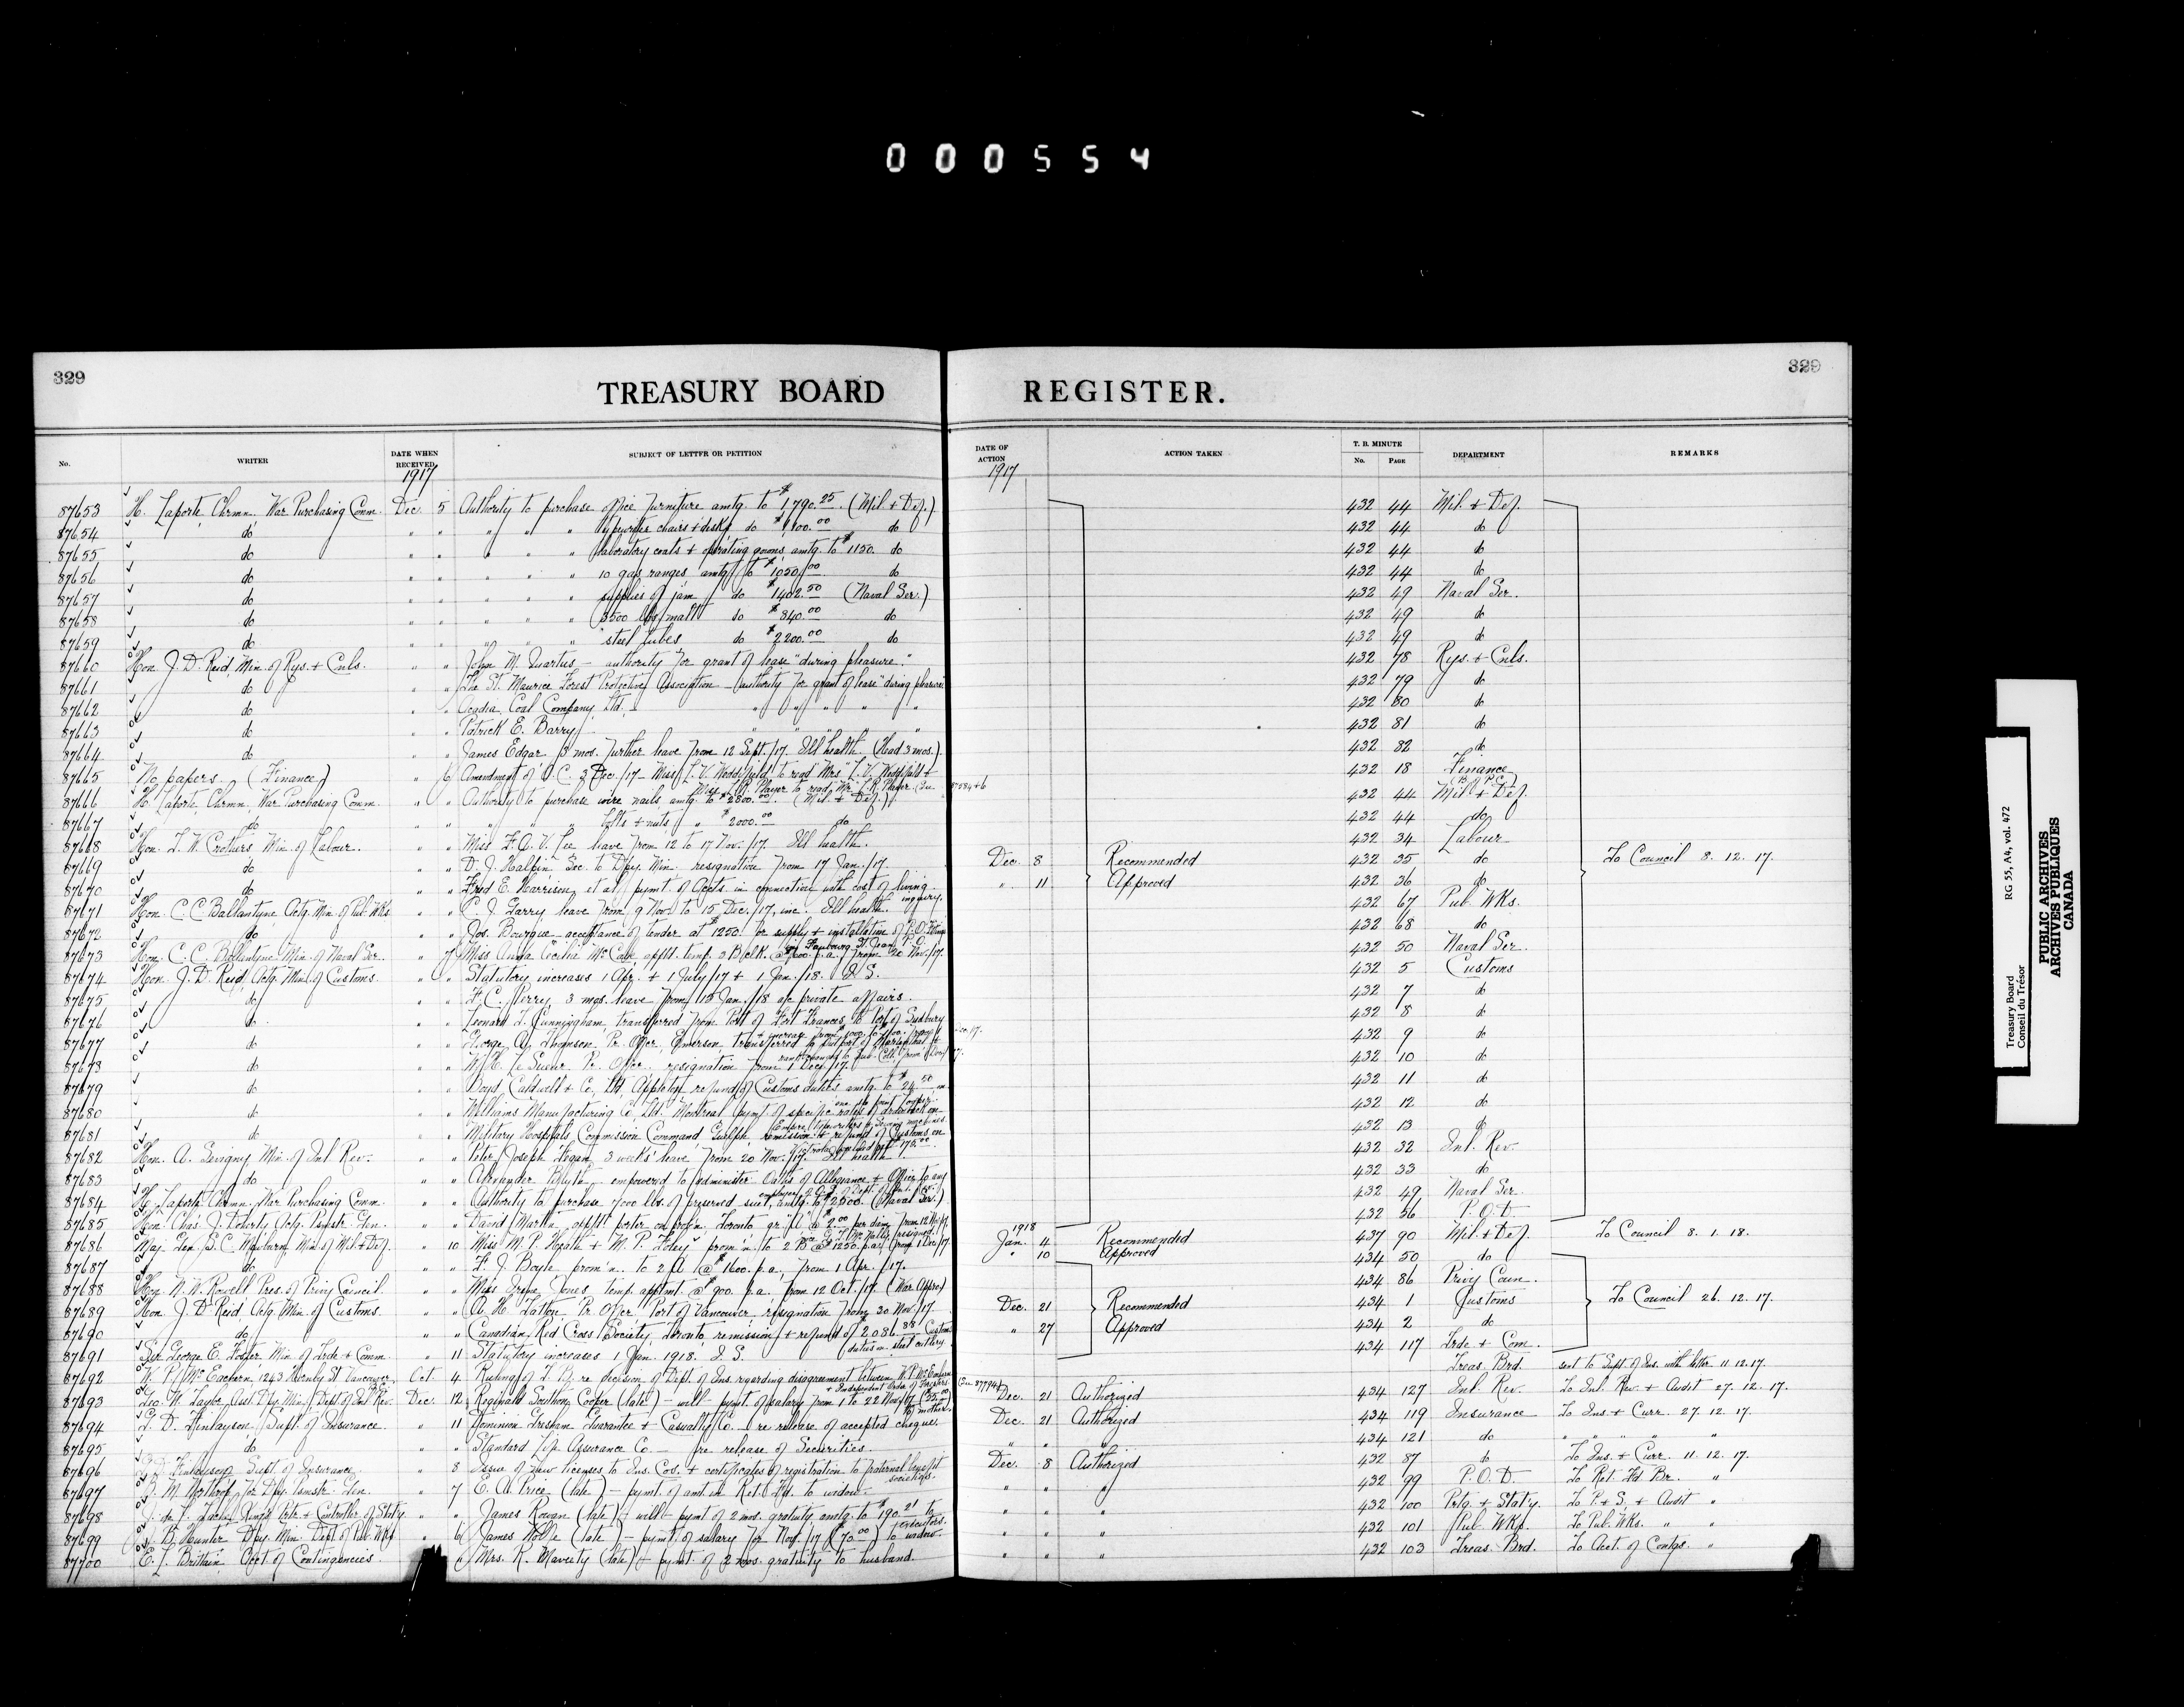 000554
329
329
TREASURY BOARD REGISTER.
No. WRITER DATE WHEN RECEIVED SUBJECT OF LETTER OR PETITION DATE OF ACTION ACTION TAKEN T. B. MINUTE No. PAGE DEPARTMENT REMARKS
1917 1917
87653 H. Laporte, Chrmn. War Purchasing Comm. Dec. 5 Authority to purchase office furniture amtg. to $1,790.25 (Mil & Def.) 432 44 Mil. & Def.
87654 do " " " " " typewriter chairs & desks do $1,100.00 do 432 44 do
87655 do " " " " " laboratory coats & operating gowns, amtg. to $1150. do 432 44 do
87656 do " " " " " 10 gas ranges amtg. to $1050.00 do 432 44 do
87657 do " " " " " supplies of jam do $1402.50 (Naval Ser.) 432 49 Naval Ser.
87658 do " " " " " 3500 lbs malt do $840.00 do 432 49 do
87659 do " " " " " steel tubes do $2200.00 do 432 49 do
87660 Hon. J. D. Reid, Min. of Rys. & Cnls. " " John M. - authority for grant of lease "during pleasure." 432 78 Rys. & Cnls.
87661 do " " The St. Maurice Forest Protective Association - authority for grant of lease "during pleasure" 432 79 do
87662 do " " Acadia Coal Company, Ltd. - " " " " " 432 80 do
87663 do " " Patrick E. Barry " " " 432 81 do
87664 do " " James Edgar 3 mos. further leave from 12 Sept./17. Ill health. (Had 3 mos.) 432 82 do
87665 No papers (Finance) " 6 Amendment of O.C. 3 Dec./17 - Miss L. V. to read "Mrs" L. V. & 432 18 Finance
Miss R. Player to read "Mr." R. Player. 87584 & 6
87666 H. Laporte, Chrmn. War Purchasing Comm. " " Authority to purchase wire nails, amtg. to $2800.00. (Mil & Def.) 432 44 Mil & Def.
87667 do " " " " " bolts & nuts " $2000.00 do 432 44 do
87668 Hon. T. W. Crothers Min. of Labour. " " Miss F. A. V. Lee leave from 12 to 17 Nov./17. Ill health. 432 34 Labour
87669 do " " D. J. Halpin, Sec. to Dpy. Min. resignation from 17 Jan./17. Dec. 8 Recommended 432 35 do To Council 8. 12. 17.
87670 do " " Fred E. Harrison, et al, pymt. of Accts. in connection with cost of living inquiry. " 11 Approved 432 36 do
87671 Hon. C. C. Ballantyne Actg. Min. of Pub. Wks. " " C. J. Garry leave from 9 Nov. to 15 Dec./17, inc. Ill health. 432 67 Pub. Wks.
87672 do " " Jos. Bourque - acceptance of tender at $1250. for supply & installation of P.O. 432 68 do
Faubourg St. Jean P.O.
87673 Hon. C. C. Ballantyne Min. of Naval Ser. " 7 Miss Anna Cecilia McCabe, apptt. temp. 3 B clk. @ $600. p.a. from 20 Nov./17. 432 50 Naval Ser.
87674 Hon. J. D. Reid, Actg. Min. of Customs. " " Statutory increases 1 Apr. & 1 July/17 & 1 Jan./18. I. S. 432 5 Customs
87675 do " " F. C. Perry, 3 mos. leave from 15 Jan./18 a/c private affairs. 432 7 do
87676 do " " Leonard T. Cunningham, transferred from Port of Fort Frances, to Port of Sudbury 432 8 do
87677 do " " George A. Thomson, Pr. Officer, Emerson transferred to 432 9 do
87678 do " " W. H. Le Sueur Pr. Officer. resignation from 1 Dec./17. 432 10 do
87679 do " " Boyd, Caldwell & Co., Ltd, Appleton refund of Customs duties amtg. to $24.50 432 11 do
87680 do " " Williams Manufacturing Co. Ltd. Montreal pymt. of specific rates of drawback on 432 12 do
Empire typewriters & Sewing machines.
87681 do " " Military Hospitals Commission Command Guelph, remission & refund of Customs on 432 13 do
87682 Hon. A. Sevigny, Min. of Inl. Rev. " " Peter Joseph Hogan, 3 weeks' leave from 20 Nov./17. Ill health 432 32 Inl. Rev.
87683 do " " Alexander Blyth - empowered to administer Oaths of Allegiance & Office to any 432 33 do
87684 H. Laporte Chrmn. War Purchasing Comm. " " Authority to purchase 7000 lbs. of preserved suet, amtg. to $2300. (Naval Ser.) 432 49 Naval Ser.
87685 Hon. Chas. J. Doherty Actg. Pmstr. Gen. " " David Martin apptt porter on prob'n. Toronto gr. "A" @ $2.00 per diem from 12 Nov./17 432 36 P.O.D.
87686 Maj. Gen. S. C. Mewburn, Min. of Mil & Def. " 10 Miss M. P. & M. P. Foley prom'n. to 2 B @ $1250. p.a. from 1 Dec./17. 1918 Jan. 4 Recommended 437 90 Mil. & Def. To Council 8. 1. 18.
87687 do " " F. J. Boyle prom'n. to 2 A @ $1600. p.a., from 1 Apr./17. " 10 Approved 434 50 do
87688 Hon. N. W. Rowell Pres. of Privy Council. " " Miss Irene Jones temp. apptmt. @ $900. p.a. from 12 Oct./17. (War Appro) 434 86 Privy Coun.
87689 Hon. J. D. Reid, Actg. Min. of Customs. " " A. H. Tatton Pr. Officer, Port of Vancouver resignation from 30 Nov./17. Dec. 21 Recommended 434 1 Customs To Council 26. 12. 17.
87690 do " " Canadian Red Cross Society, Toronto, remission & refund of $2086.88 Customs " 27 Approved 434 2 do
duties on steel cutlery.
87691 Sir George E. Foster Min. of Trde & Comm. " 11 Statutory increases 1 Jan. 1918. I. S. 434 117 Trde & Com.
87692 W. P. McEachern, 1243 Hornby St. Vancouver. Oct. 4 Ruling of T.B. re decision of Dept. of Ins. regarding disagreement between W. P. McEachern Treas. Brd. sent to Supt. of Ins. with letter 11.12.17.
& Independent Order of Foresters.
87693 Geo. W. Taylor Asst. Dpy. Min. Dept. of Inl. Rev. Dec. 12 Reginald Southon Cooper (late) - will - pymt. of salary from 1 to 22 Nov./17 to mother. Dec. 21 Authorized 434 127 Inl. Rev. To Inl. Rev. & Audit 27. 12. 17.
87694 G. D. Finlayson, Supt. of Insurance. " 11 Dominion Gresham Guarantee & Casualty Co. - re release of accepted cheque. Dec. 21 Authorized 434 119 Insurance To Ins. & Curr. 27. 12. 17.
87695 do " " Standard Life Assurance Co. - re release of Securities. " " " 434 121 do " " " "
87696 Finlayson, Supt. of Insurance " 8 Issue of new licenses to Ins. Cos. & certificates of registration to fraternal benefit societies. Dec. 8 Authorized 432 87 do To Ins. & Curr. 11. 12. 17.
87697 for Dpy. Pmstr. Gen. " 7 E. A. Price (late) - pymt. of amt. in Ret. Fd. to widow. " " " 432 99 P.O.D. To Ret. Fd. Br. "
87698 King's Prtr. & Controller of Staty. " " James Rowan (late) - will - pymt of 2 mos. gratuity amtg. to $190.21 to executors. " " " 432 100 Prtg. & Stat'y. To P. & S. & Audit "
87699 J. B. Hunter Dpy. Min. Dept. of Pub. Wks. " 6 James Wolfe (late) - pymt. of salary for Nov./17 ($70.00) to widow. " " " 432 101 Pub. Wks. To Pub. Wks. " "
87700 E. L. Brittain, Acct. of Contingencies. " 6 Mrs. R. Maveety (late) - pymt. of 2 mos. gratuity to husband. " " " 432 103 Treas. Brd. To Acct. of Contgs. "
Treasury Board RG 55, A4, vol. 472
Conseil du Trésor
PUBLIC ARCHIVES
ARCHIVES PUBLIQUES
CANADA